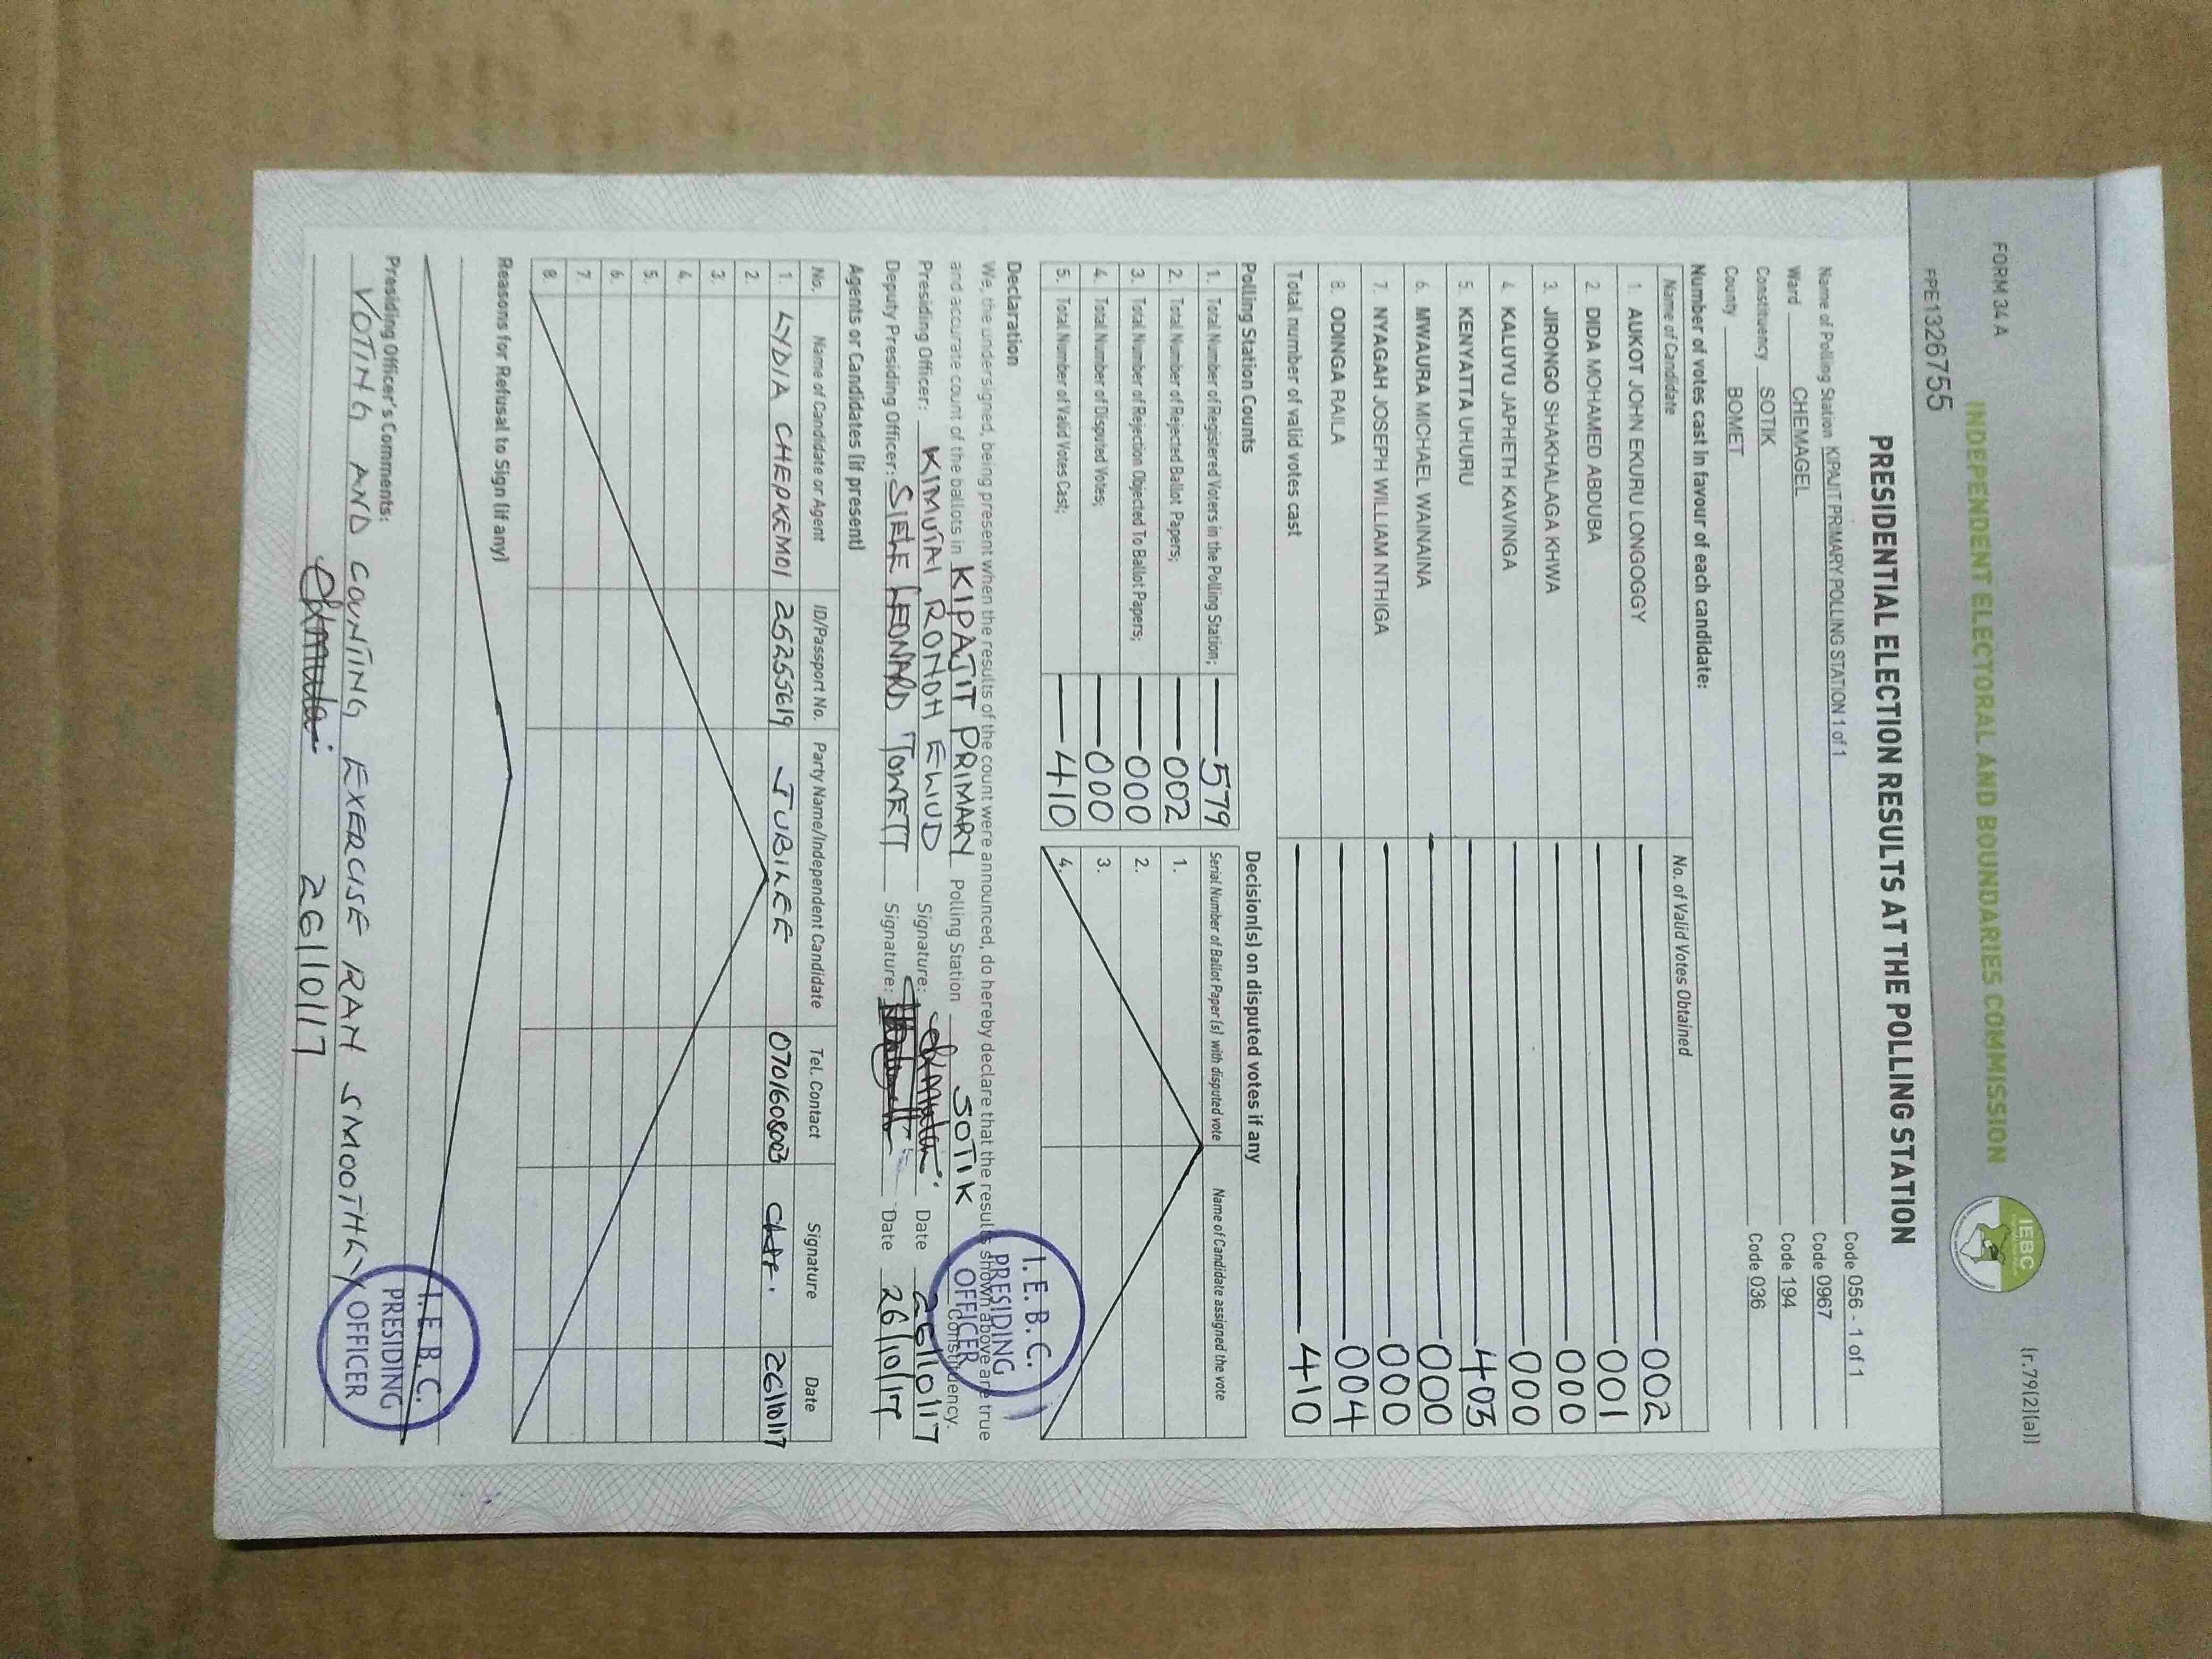 FORM 34A
(r.79(2)(a))
INDEPENDENT ELECTORAL AND BOUNDARIES COMMISSION
IEBC
PPE1326755
PRESIDENTIAL ELECTION RESULTS AT THE POLLING STATION
Name of Polling Station KIPAJIT PRIMARY POLLING STATION 1 of 1 Code 056 - 1 of 1
Ward CHEMAGEL Code 0967
Constituency SOTIK Code 194
County BOMET Code 036
Number of votes cast in favour of each candidate:
Name of Candidate No. of Valid Votes Obtained
1. AUKOT JOHN EKURU LONGOGGY 002
2. DIDA MOHAMED ABDUBA 001
3. JIRONGO SHAKHALAGA KHWA 000
4. KALUYU JAPHETH KAVINGA 000
5. KENYATTA UHURU 403
6. MWAURA MICHAEL WAINAINA 000
7. NYAGAH JOSEPH WILLIAM NTHIGA 000
8. ODINGA RAILA 004
Total number of valid votes cast 410
Polling Station Counts Decision(s) on disputed votes if any
Serial Number of Ballot Paper (s) with disputed vote Name of Candidate assigned the vote
1. Total Number of Registered Voters in the Polling Station; 579
2. Total Number of Rejected Ballot Papers; 002 1.
3. Total Number of Rejection Objected To Ballot Papers; 000 2.
4. Total Number of Disputed Votes; 000 3.
5. Total Number of Valid Votes Cast; 410 4.
Declaration
We, the undersigned, being present when the results of the count were announced, do hereby declare that the results shown above are true
and accurate count of the ballots in KIPAJIT PRIMARY Polling Station SOTIK Constituency.
Presiding Officer: KIMUTAI RONOH ELIUD Signature: Date 26/10/17
Deputy Presiding Officer: SIELE LEONARD TOWETT Signature: Date 26/10/17
I. E. B. C.
PRESIDING
OFFICER
Agents or Candidates (if present)
No. Name of Candidate or Agent ID/Passport No. Party Name/Independent Candidate Tel. Contact Signature Date
1. LYDIA CHEPKEMOI 25255619 JUBILEE 0701608003 26/10/17
2.
3.
4.
5.
6.
7.
8.
Reasons for Refusal to Sign (if any)
Presiding Officer's Comments:
VOTING AND COUNTING EXERCISE RAN SMOOTHLY
26/10/17
I. E. B. C.
PRESIDING
OFFICER